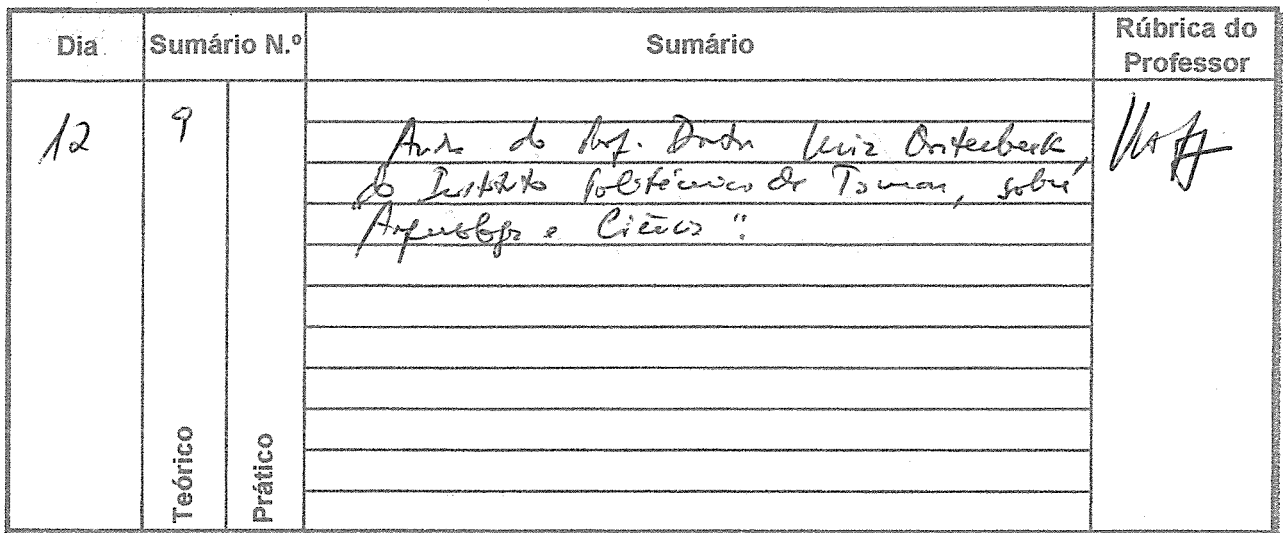 Dia Sumário N.º Sumário Rúbrica do Professor
12 9
Aula do Prof. Doutor Luiz Oosterbeek,
do Instituto Politécnico de Tomar, sobre
"Arqueologia e Ciência".
Teórico Prático